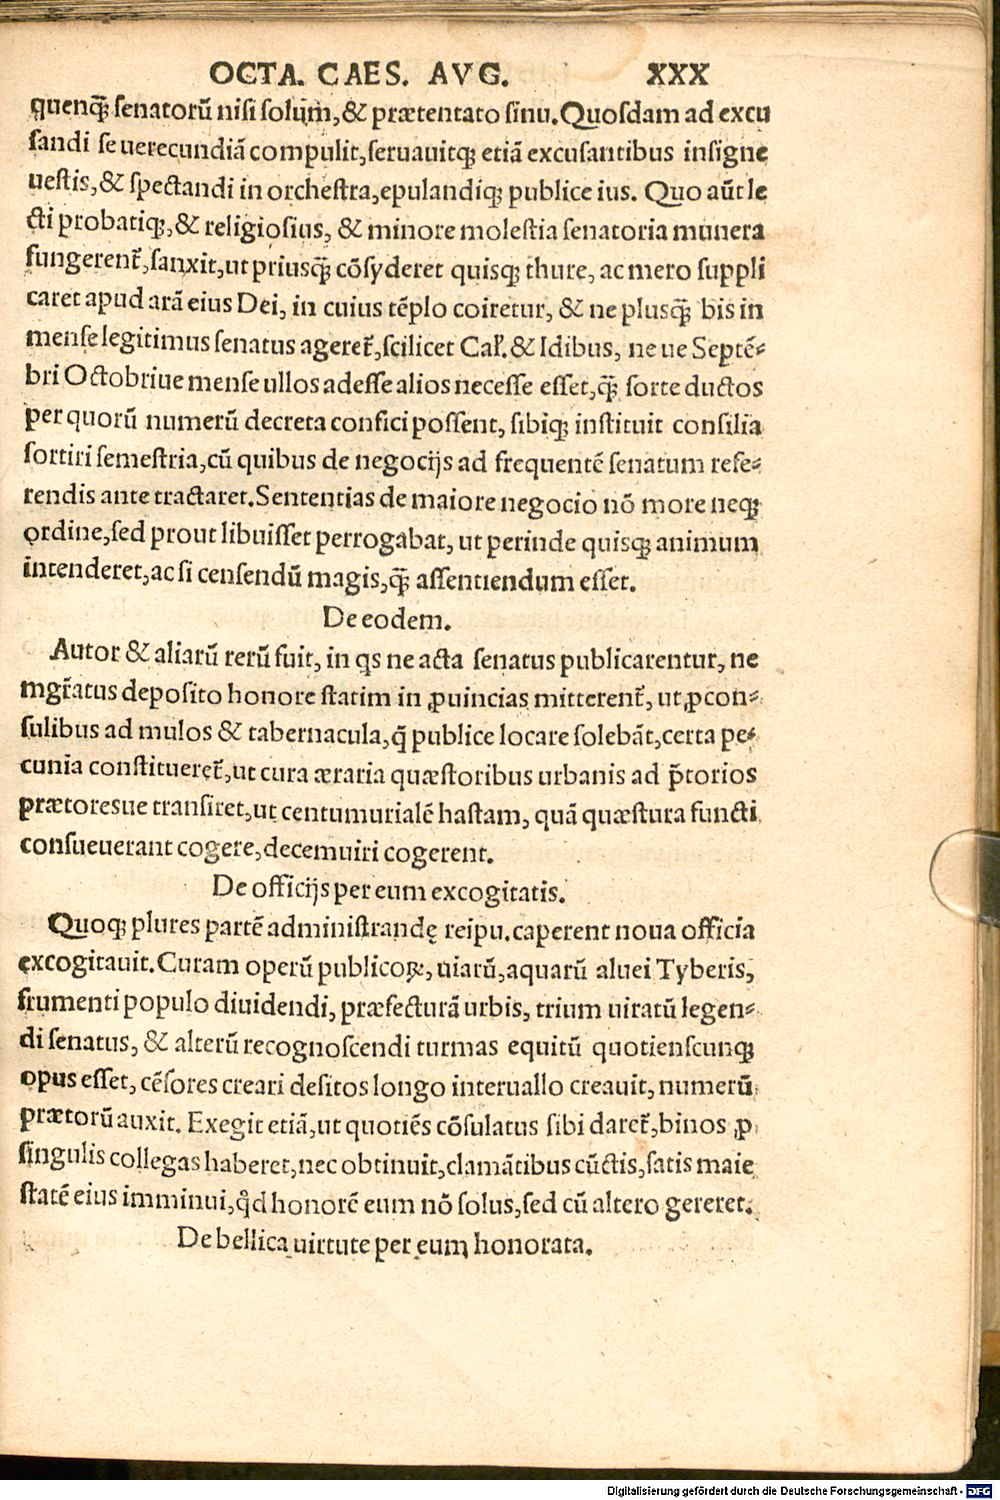 OCTA. CAES. AVG. XXX
quenq̃ senatorũ nisi solum, & prætentato sinu. Quosdam ad excu
sandi se uerecundiã compulit, seruauitq; etiã excusantibus insigne
uestis, & spectandi in orchestra, epulandiq; publice ius. Quo aũt le
cti probatiq;, & religiosius, & minore molestia senatoria munera
fungerent̃, sanxit, ut priusq̃ cõsyderet quisq; thure, ac mero suppli
caret apud arã eius Dei, in cuius tẽplo coiretur, & ne plusq̃ bis in
mense legitimus senatus ageret̃, scilicet Cal̃. & Idibus, ne ue Septẽ-
bri Octobriue mense ullos adesse alios necesse esset, q̃ sorte ductos
per quorũ numerũ decreta confici possent, sibiq; instituit consilia
sortiri semestria, cũ quibus de negocijs ad frequentẽ senatum refe-
rendis ante tractaret. Sententias de maiore negocio nõ more neq;
ordine, sed prout libuisset perrogabat, ut perinde quisq; animum
intenderet, ac si censendũ magis, q̃ assentiendum esset.
De eodem.
Autor & aliarũ rerũ fuit, in qs ne acta senatus publicarentur, ne
mgr̃atus deposito honore statim in ꝓuincias mitterent̃, ut ꝓcon-
sulibus ad mulos & tabernacula, q̃ publice locare solebãt, certa pe-
cunia constitueret̃, ut cura æraria quæstoribus urbanis ad p̃torios
prætoresue transiret, ut centumurialẽ hastam, quã quæstura functi
consueuerant cogere, decemuiri cogerent.
De officijs per eum excogitatis.
Quoq; plures partẽ administrandę reipu. caperent noua officia
excogitauit. Curam operũ publicoꝝ, uiarũ, aquarũ aluei Tyberis,
frumenti populo diuidendi, præfecturã urbis, trium uiratũ legen-
di senatus, & alterũ recognoscendi turmas equitũ quotienscunq;
opus esset, cẽsores creari desitos longo interuallo creauit, numerũ
prætorũ auxit. Exegit etiã, ut quotiẽs cõsulatus sibi daret̃, binos ꝓ
singulis collegas haberet, nec obtinuit, clamãtibus cũctis, satis maie
statẽ eius imminui, qd̃ honorẽ eum nõ solus, sed cũ altero gereret.
De bellica uirtute per eum honorata.
Digitalisierung gefördert durch die Deutsche Forschungsgemeinschaft - DFG